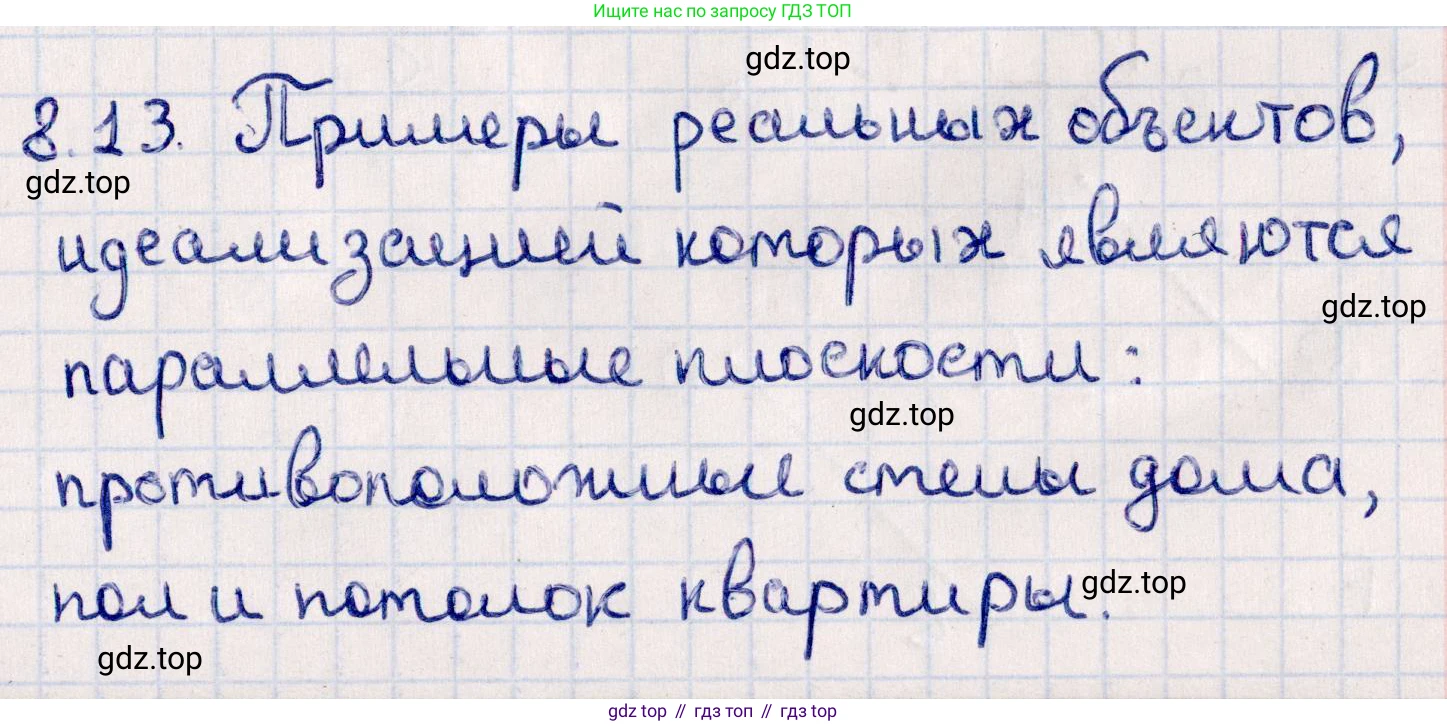 Ищите нас по запросу ГДЗ ТОП
gdz.top
8.13. Примеры реальных объектов,
gdz.top
идеализацией которых являются
gdz.top
параллельные плоскости:
gdz.top
противоположные стены дома,
пол и потолок квартиры.
gdz.top
gdz.top
gdz top // гдз топ // гдз top